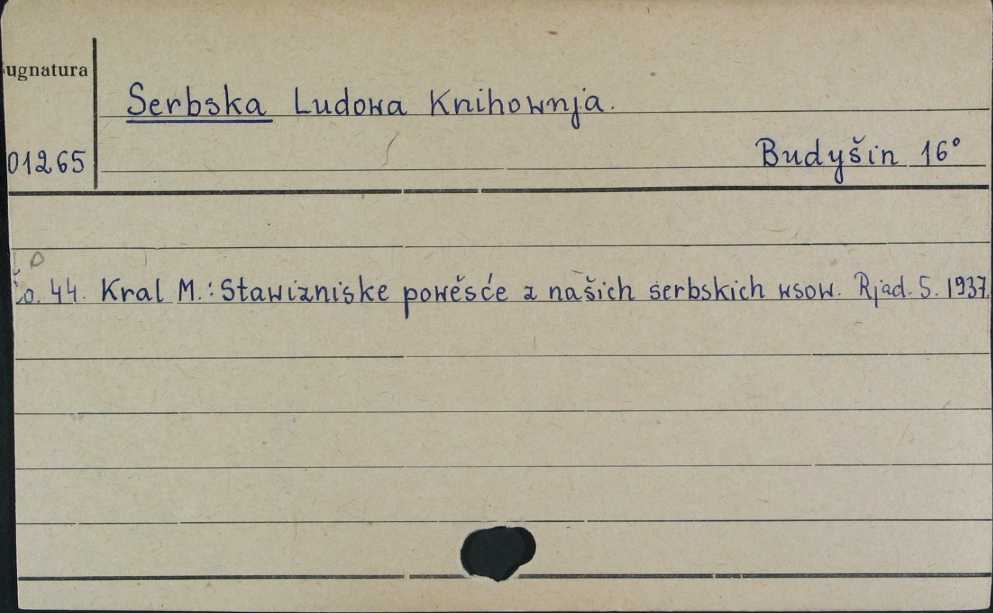 Sugnatura
Serbska Ludowa Knihownja.
01265
Budyšin 16°
Čo. 44. Kral M.: Stawizniske powěsće z našich serbskich wsow. Rjad. 5. 1937.